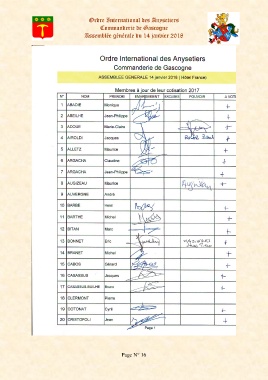 Ordre International des Anysetiers
Commanderie de Gascogne
Assemblée générale du 14 janvier 2018
Ordre International des Anysetiers
Commanderie de Gascogne
ASSEMBLEE GENERALE 14 janvier 2018 (Hôtel France)
Membres à jour de leur cotisation 2017
N° NOM PRENOM EMARGEMENT EXCUSES POUVOIR A VOTE
1 ABADIE Monique +
2 ABEILHE Jean-Philippe
3 ADOUE Marie-Claire +
4 AIROLDI Jacques +
5 ALLETZ Maurice +
6 ARGACHA Claudine +
7 ARGACHA Jean-Philippe +
8 AUGIZEAU Maurice +
9 AUVERGNE André
10 BARBE Henri +
11 BARTHE Michel +
12 BITAN Marc +
13 BONNET Eric +
14 BRIANET Michel +
15 CABOS Gérard +
16 CASASSUS Jacques +
17 Bruno +
18 CLERMONT Pierre
19 COTONAT Cyril +
20 CRISTOFOLI Jean +
Page 1
Page N° 16